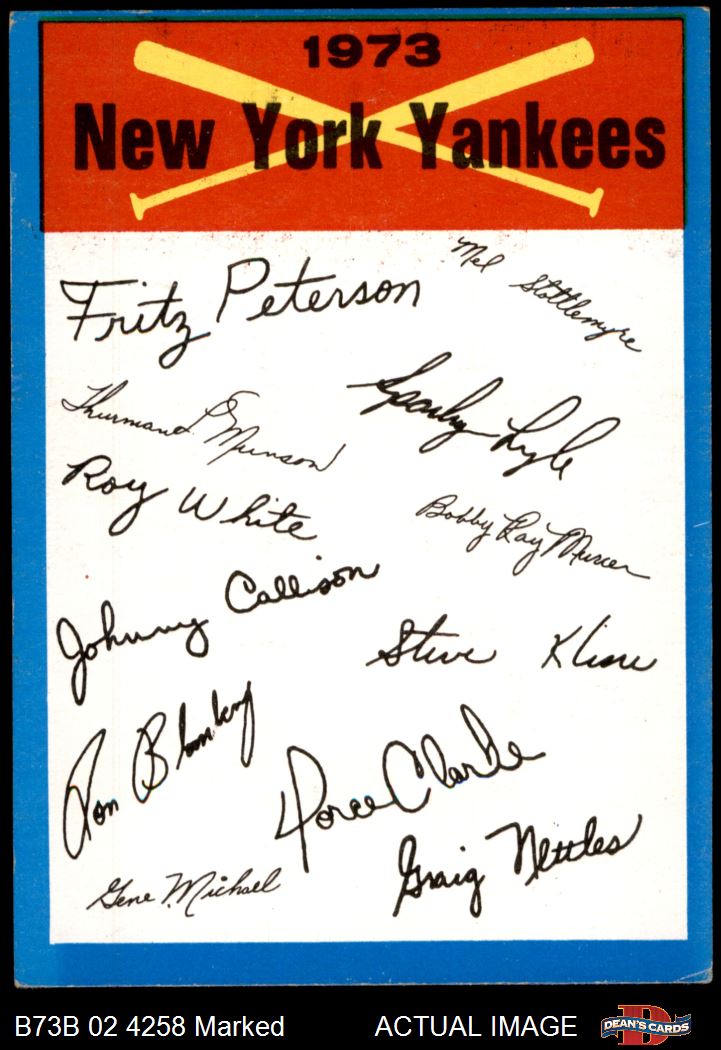 1973
New York Yankees
Fritz Peterson
Mel Stottlemyre
Thurman L Munson
Sparky Lyle
Roy White
Bobby Ray Murcer
Johnny Callison
Steve Kline
Ron Blomberg
Horace Clarke
Graig Nettles
Gene Michael
B73B 02 4258 Marked
ACTUAL IMAGE
D
DEAN'S CARDS